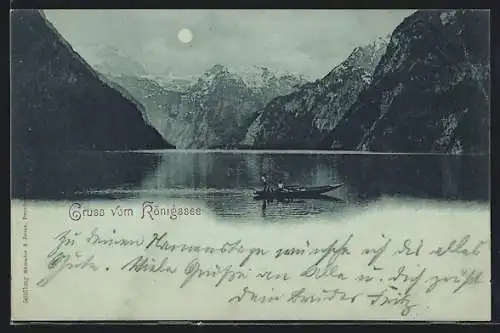 Gruss vom Königssee
Zu deinem Namenstage wünsche ich dir alles
Gute. Viele Grüße an Alle u. dich grüßt
dein Bruder Fritz